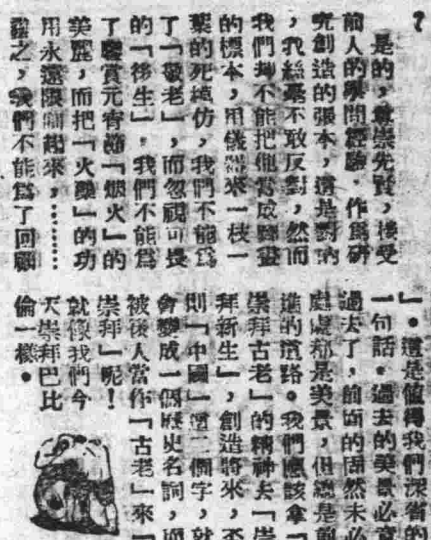 ？
是的，尊崇先賢，接受
前人的學問經驗，作為研
究創造的張本，這是對的
，我絲毫不敢反對，然而
我們卻不能把他當成臨畫
的標本，用儀器來一枝一
葉的死模仿，我們不能為
了「敬老」，而忽視可畏
的「後生」，我們不能為
了鑒賞元宵節「燄火」的
美麗，而把「火藥」的功
用永遠限制起來，………
總之，我們不能為了回顧
」。這是值得我們深省的
一句話。過去的美景必竟
過去了，前面的固然未必
處處都是美景，但總是前
進的道路。我們應該拿「
崇拜古老」的精神去「崇
拜新生」，創造將來，否
則「中國」這二個字，就
會變成一個歷史名詞，而
被後人當作「古老」來「
崇拜」呢！
就像我們今
天崇拜巴比
倫一樣。